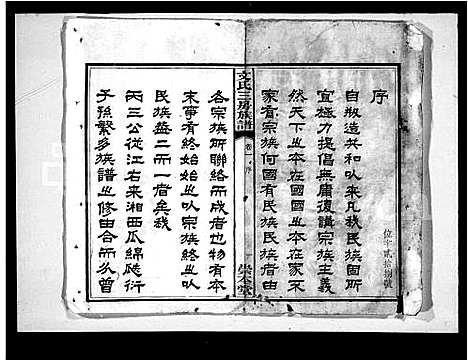 序
自叛造共和以来凡我民族固所
宜極力提倡無庸復講宗族主義
然天下之本在國國之本在家不
家有宗族何國有民族民族者由
文氏三房族譜
卷一 序
各宗族所聯絡而成者也物有本
末事有終始始之以宗族終之以
民族盎二而一者矣我
丙三公從江右来湘西瓜綿瓞衍
子孫繁多族譜之修由合而分曾